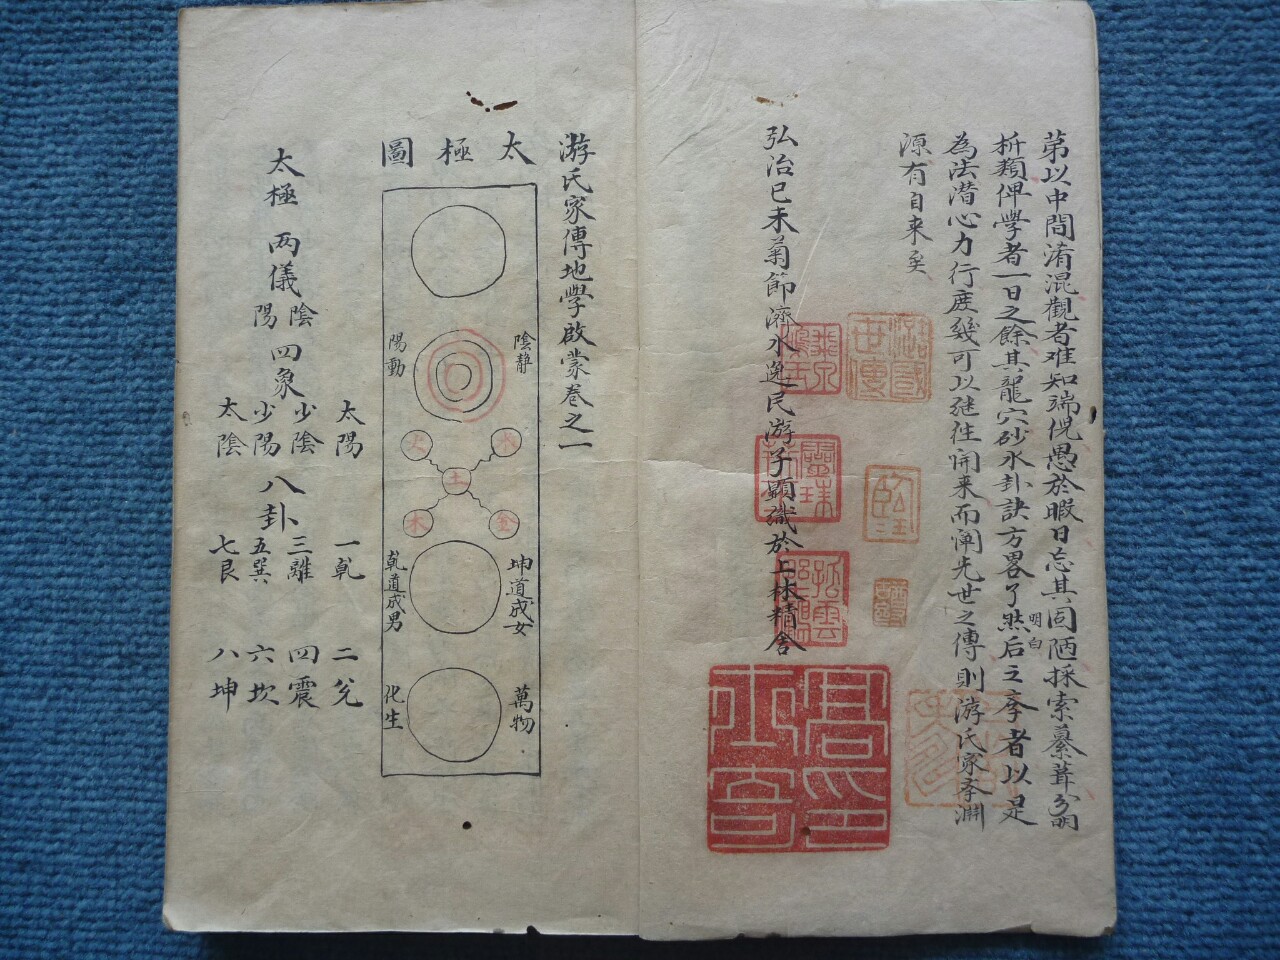 苐以中間淆混觀者难知端倪愚於暇日忘其固陋採索纂葺分明
析類俾學者一日之餘其龍穴砂水卦訣方畧了然明白后之孝者以是
為法潜心力行庶幾可以继往开来而阐先世之傳則游氏家孝渊
源有自来矣
弘治已未菊節濟水逸民游子顯識於上林精舍
游氏家傳地學啟蒙卷之一
太極圖
陰靜
陽動
水
火
土
金
木
坤道成女
乾道成男
萬物
化生
太極 两儀 陰 陽 四象 太陽 少陰 少陽 太陰 八卦
一乾 二兌
三離 四震
五巽 六坎
七艮 八坤